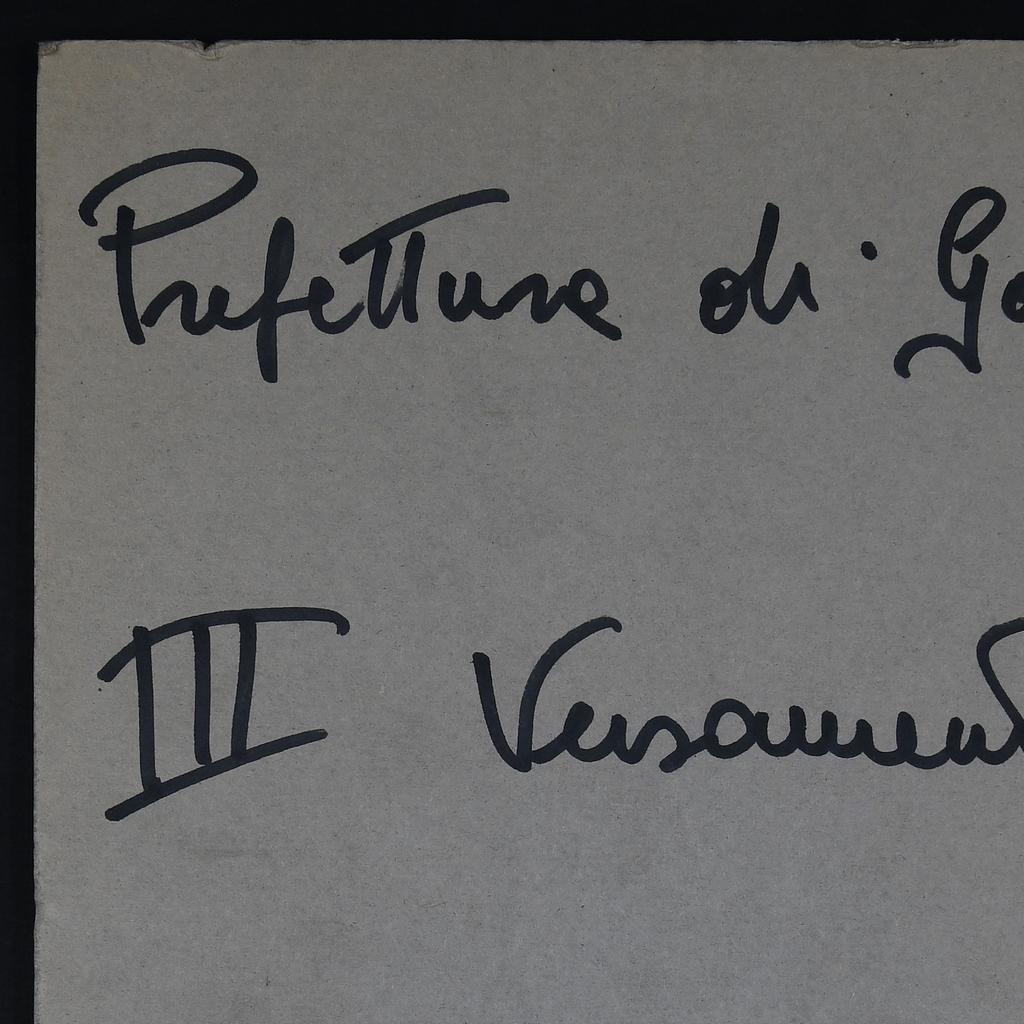 Prefettura di Go
III Versament